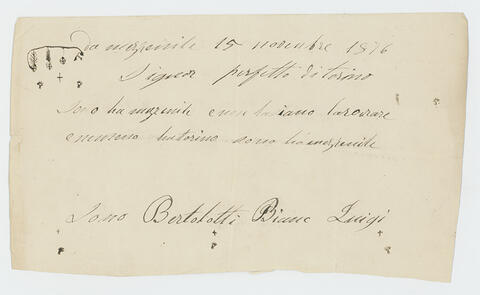 da mazzinile 15 novenbre 1876
Signor perfetto di torino
Sono ha mazinile e non lasiano lavorare
e mmeno ha torino sono ha mazinile
Sono Bertolotti Bianc Luigi